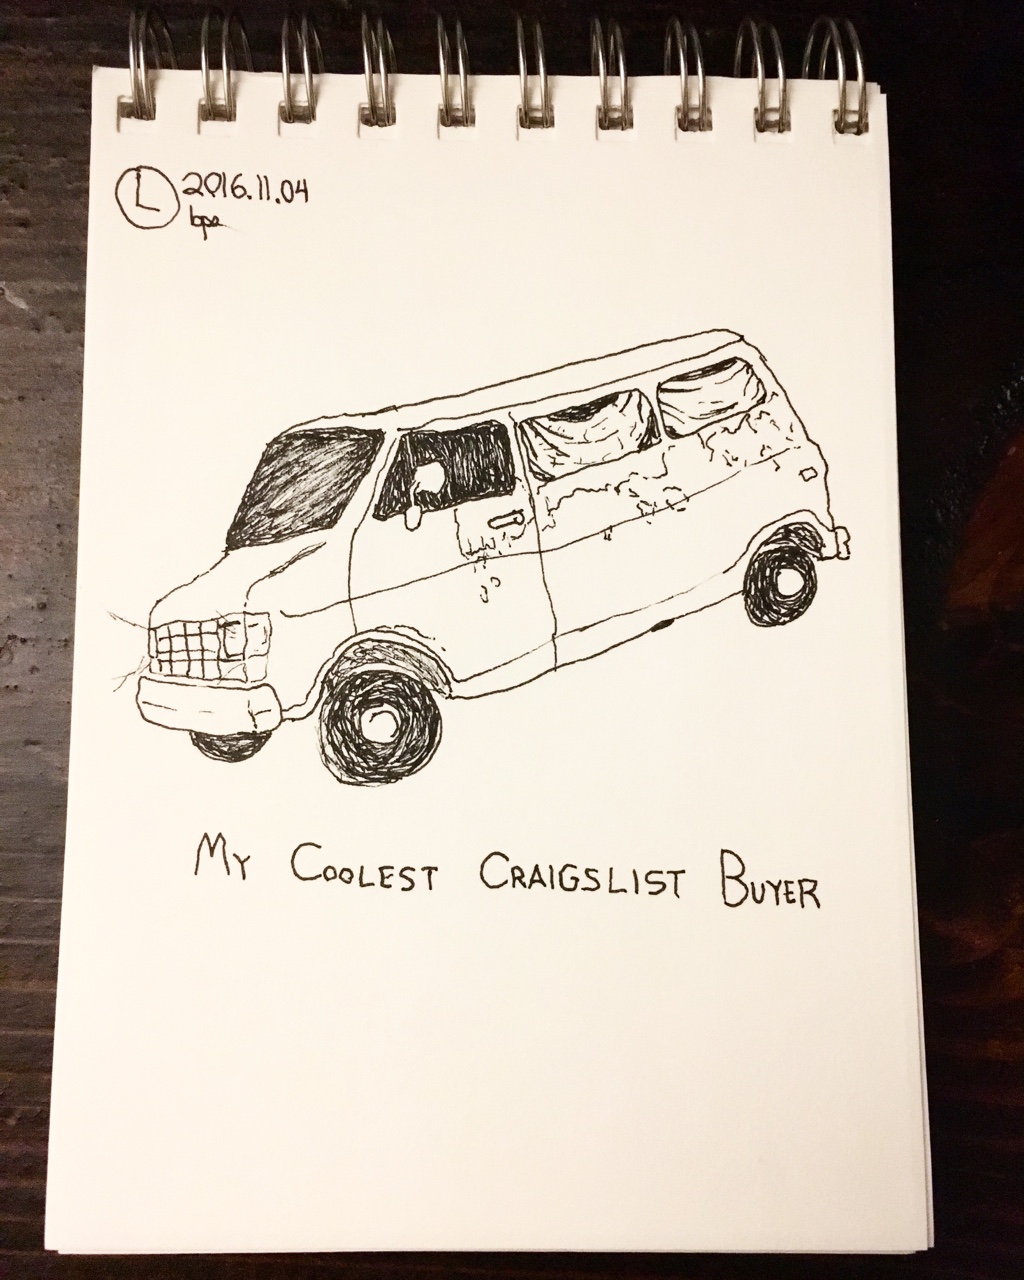 L 2016.11.04
My Coolest Craigslist Buyer